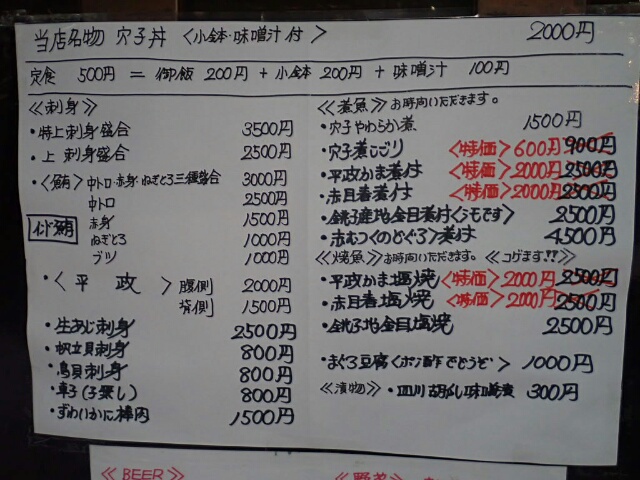 当店名物 穴子丼 〈小鉢・味噌汁付〉 2000円
定食 500円 = 御飯 200円 + 小鉢 200円 + 味噌汁 100円
≪刺身≫
・特上刺身盛合 3500円
・上 刺身盛合 2500円
・〈鮪〉中トロ・赤身・ねぎとろ三種盛合 3000円
中トロ 2500円
インド鮪
赤身 1500円
ねぎとろ 1000円
ブツ 1000円
・〈平政〉腹側 2000円
背側 1500円
・生あじ刺身 2500円
・帆立貝刺身 800円
・鳥貝刺身 800円
・章子(子蒸し) 800円
・ずわいかに棒肉 1500円
≪煮魚≫お時間いただきます。
・穴子やわらか煮 1500円
・穴子煮こごり 〈特価〉600円 900円
・平政かま煮付 〈特価〉2000円 2500円
・赤目春煮付 〈特価〉2000円 2500円
・銚子産地金目煮付〈シモです〉 2500円
・赤むつ〈のどぐろ〉煮付 4500円
≪焼魚≫お時間いただきます。≪コゲます!!≫
・平政かま塩焼 〈特価〉2000円 2500円
・赤目春塩焼 〈特価〉2000円 2500円
・銚子地金目塩焼 2500円
・まぐろ豆腐〈ポン酢でどうぞ〉 1000円
≪漬物≫ ・四川 味 300円
≪BEER≫
≪野菜≫